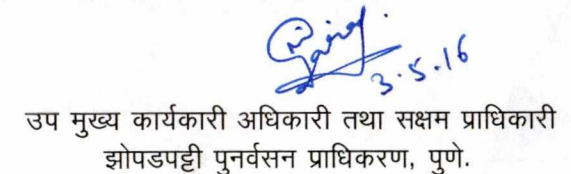 3.5.16
उप मुख्य कार्यकारी अधिकारी तथा सक्षम प्राधिकारी
झोपडपट्टी पुनर्वसन प्राधिकरण, पुणे.